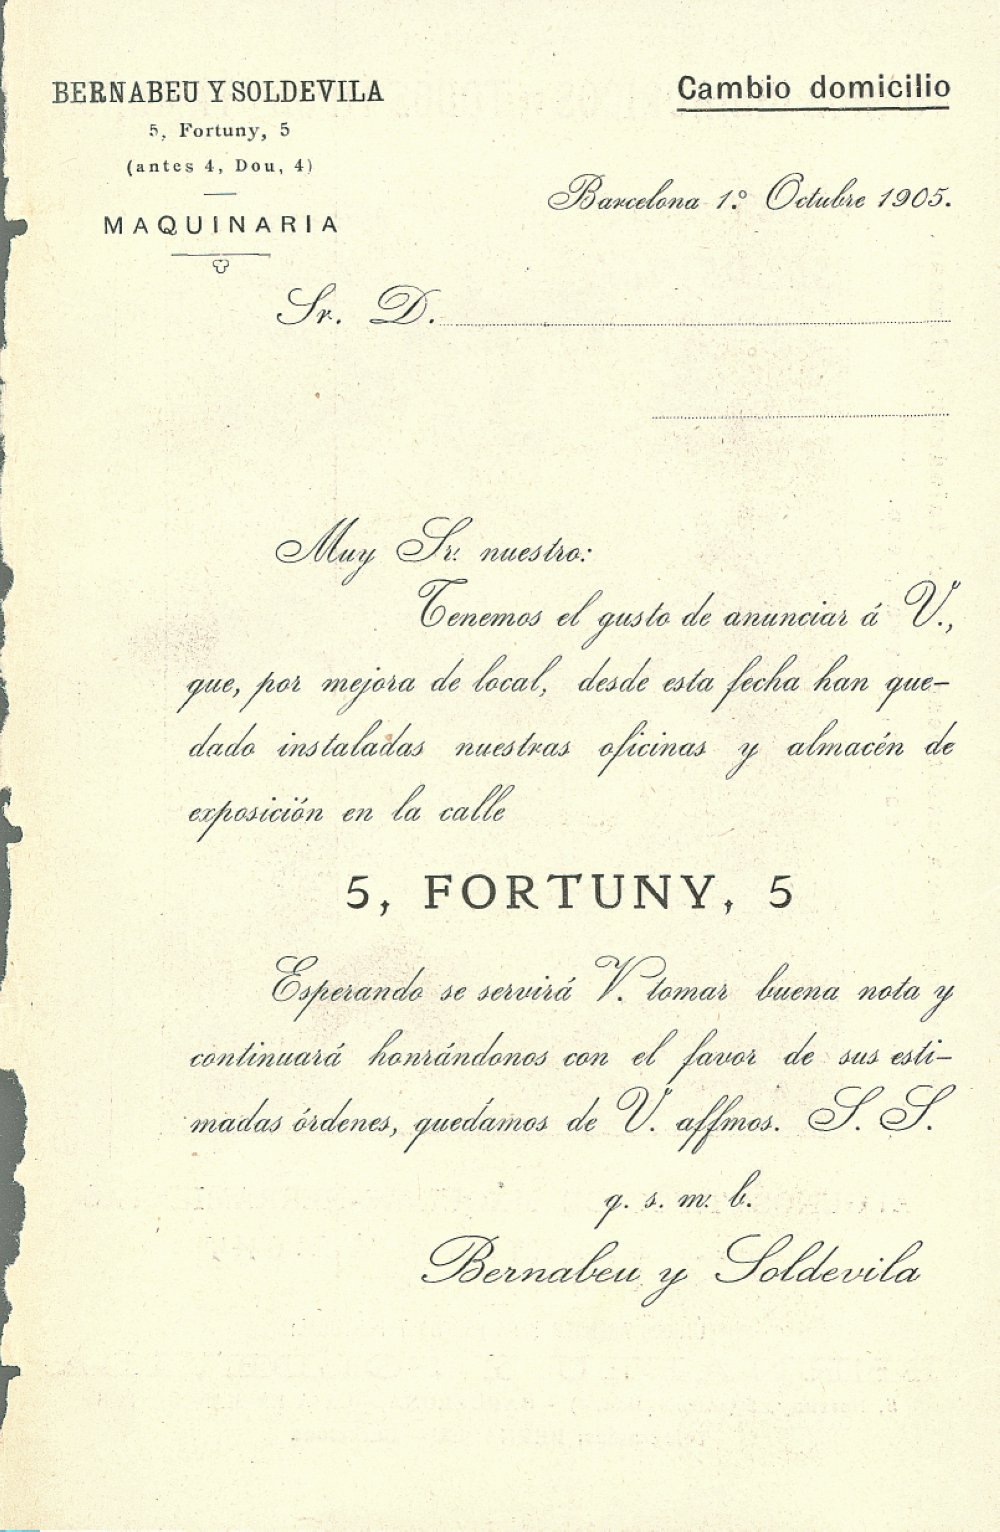 BERNABEU Y SOLDEVILA
5, Fortuny, 5
(antes 4, Dou, 4)
MAQUINARIA
Cambio domicilio
Barcelona 1.º Octubre 1905.
Sr. D.
Muy Sr. nuestro:
Tenemos el gusto de anunciar á V.,
que, por mejora de local, desde esta fecha han que-
dado instaladas nuestras oficinas y almacén de
exposición en la calle
5, FORTUNY, 5
Esperando se servirá V. tomar buena nota y
continuará honrándonos con el favor de sus esti-
madas órdenes, quedamos de V. affmos. S. S.
q. s. m. b.
Bernabeu y Soldevila